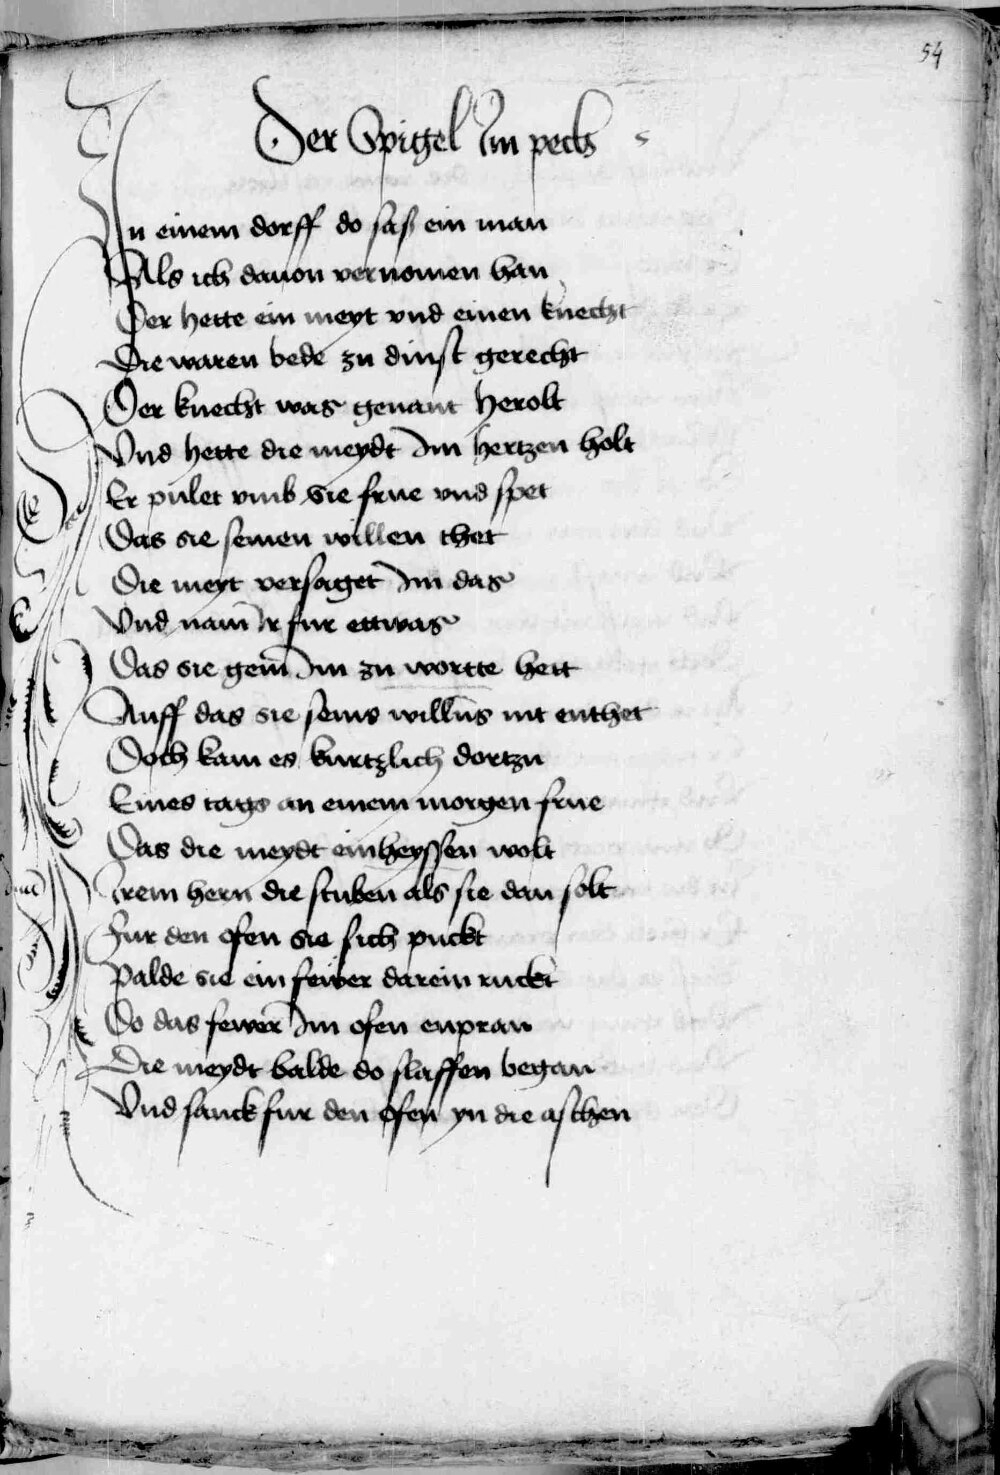 54
Der Spigel Im pech
In einem dorff do saß ein man
Als ich dauon vernomen han
Der hette ein meyt vnd einen knecht
Die waren bede zu dinst gerecht
Der knecht was genant Herolt
Vnd hette die meydt Im hertzen holt
Er pulet vmb sie frue vnd spet
Das sie seinen willen thet
Die meyt versaget Im das
Vnd nam Ir fur ettwas
Das sie gein Im zu wortte hett
Auff das sie seins willns nit enthet
Doch kam es kurtzlich dortzu
Eines tags an einem morgen frue
Das die meydt einheyssen wolt
Irem hern die stuben als sie dan solt
Fur den ofen sie sich puckt
Palde sie ein fewer darein ruckt
Do das fewer Im ofen enpran
Die meydt balde do slaffen began
Vnd sanck fur den ofen yn die aschen